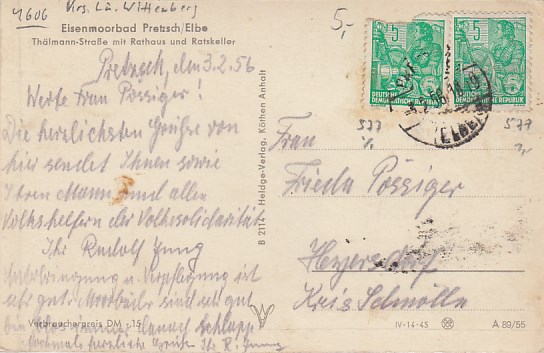 4606 Krs. Lu. Wittenberg
5,-
Eisenmoorbad Pretzsch/Elbe
Thälmann-Straße mit Rathaus und Ratskeller
Pretzsch, dm 3.2.56
Werte Frau Pössiger!
Die herzlichsten Grüße von
hier sendet Ihnen sowie
Ihren Mann und allen
Volkshelfern der Volkssolidarität
Ihr Rudolf Jung
Unterbringung u. Verpflegung ist
sehr gut. Moorbäder sind sehr gut
bin danach schlapp
Nochmals herzliche Grüße Ihr R. Jung
Verbraucherpreis DM -.15
B 2114 Heldge-Verlag, Köthen Anhalt
5
5
DEUTSCHE
DEMOKRATISCHE REPUBLIK
577
577
(ELBE)
Frau
Frieda Pössiger
Heyersdorf
Kreis Schmölln
IV-14-45
A 89/55